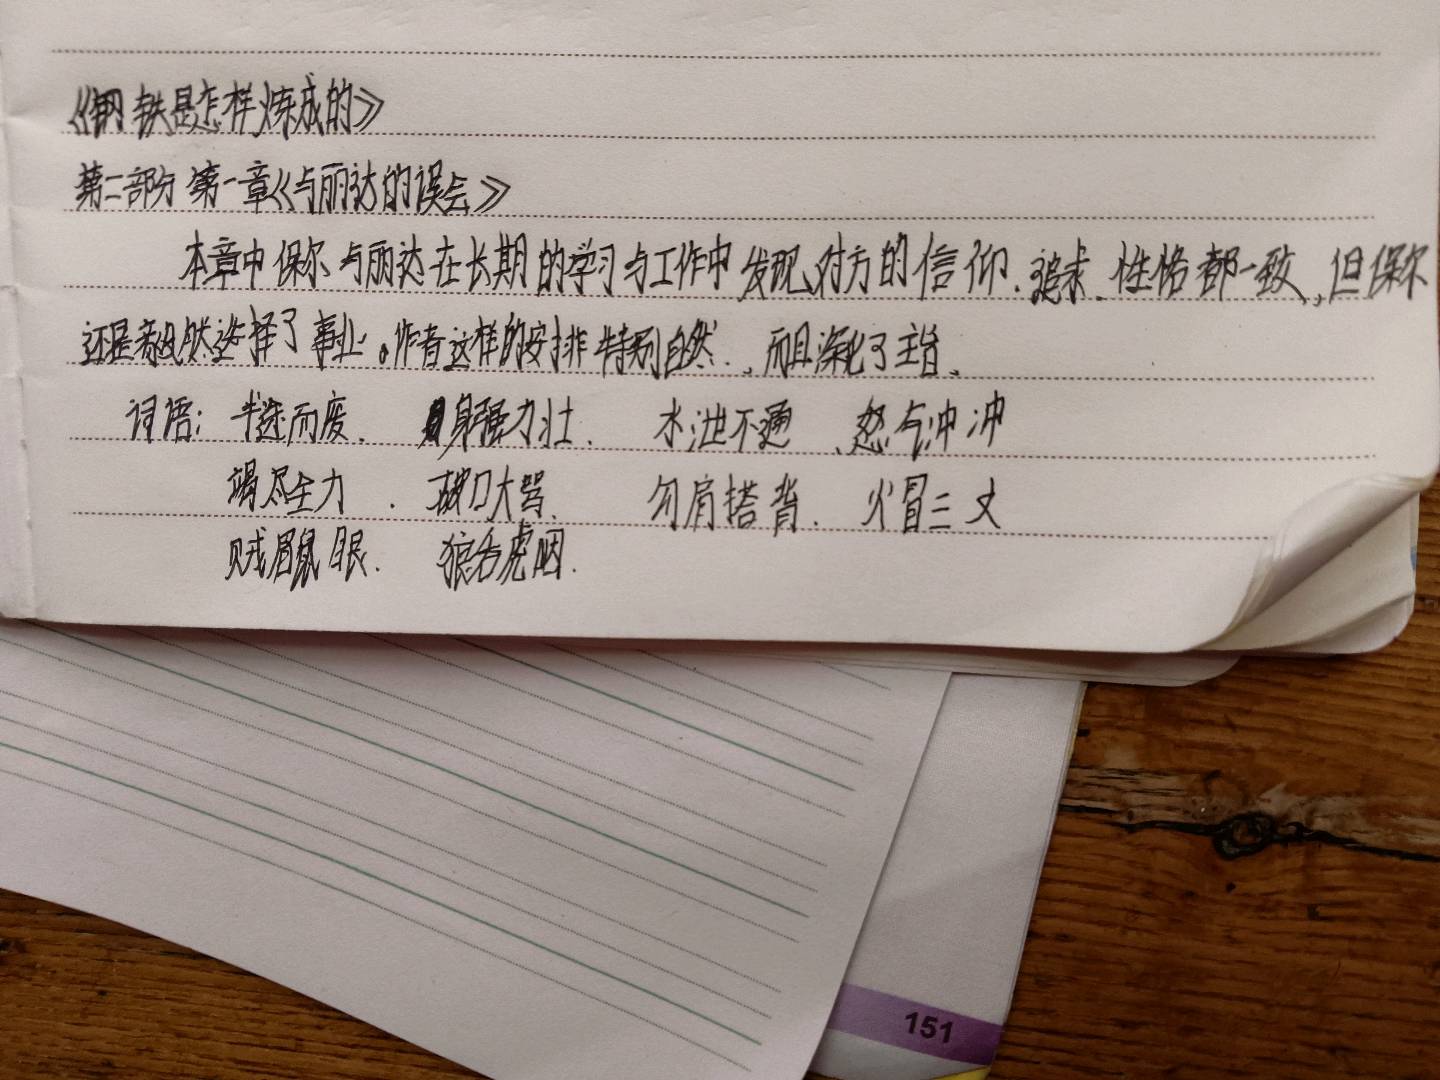 《钢铁是怎样炼成的》
第二部分 第一章《与丽达的误会》
本章中保尔与丽达在长期的学习与工作中发现对方的信仰、追求、性格都一致,但保尔
还是毅然选择了事业。作者这样的安排特别自然、而且深化了主旨。
词语: 半途而废、 身强力壮、 水泄不通、怒气冲冲
竭尽全力、 破口大骂、 勾肩搭背、 火冒三丈
贼眉鼠眼、 狼吞虎咽、
151